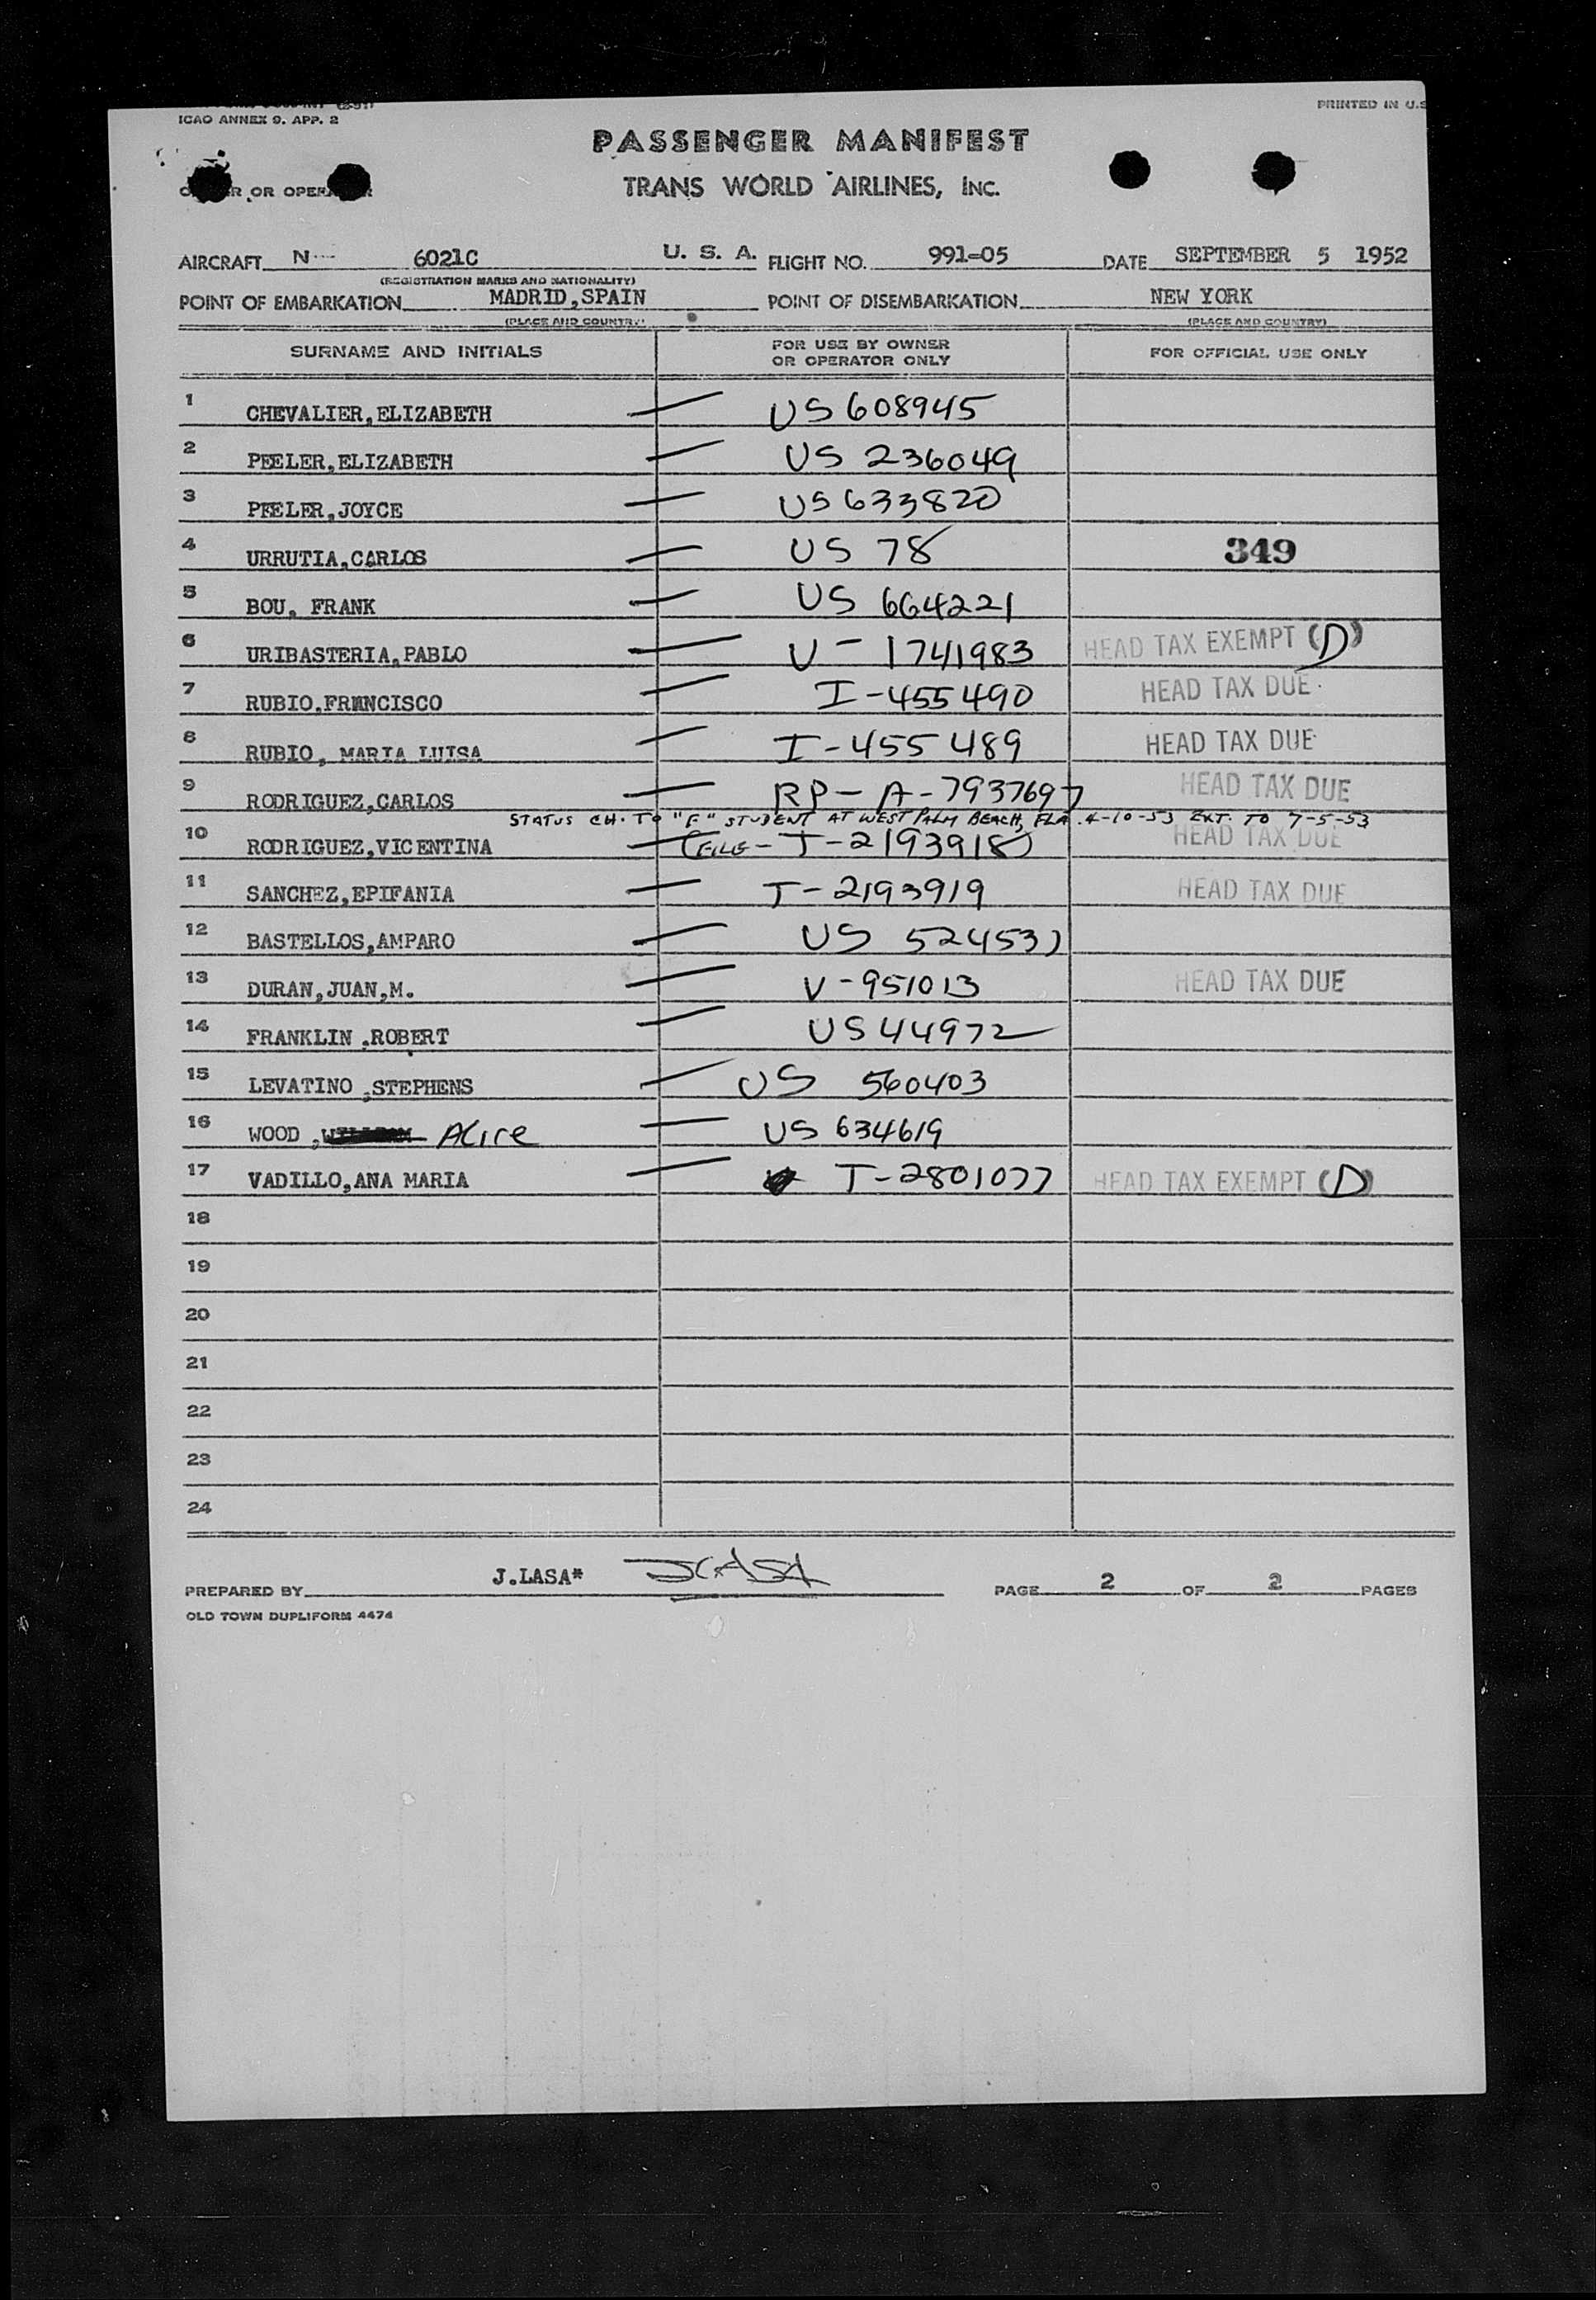 ICAO ANNEX 9. APP. 2
PRINTED IN U.S
PASSENGER MANIFEST
OR OPERATOR
TRANS WORLD AIRLINES, INC.
AIRCRAFT N 6021C U. S. A. FLIGHT NO. 991-05 DATE SEPTEMBER 5 1952
(REGISTRATION MARKS AND NATIONALITY)
POINT OF EMBARKATION MADRID,SPAIN POINT OF DISEMBARKATION NEW YORK
(PLACE AND COUNTRY) (PLACE AND COUNTRY)
SURNAME AND INITIALS FOR USE BY OWNER OR OPERATOR ONLY FOR OFFICIAL USE ONLY
1 CHEVALIER,ELIZABETH — US 608945
2 PEELER,ELIZABETH — US 236049
3 PEELER,JOYCE — US 633820
4 URRUTIA,CARLOS — US 78 349
5 BOU, FRANK — US 664221
6 URIBASTERIA,PABLO — V - 1741983 HEAD TAX EXEMPT (D)
7 RUBIO,FRANCISCO — I - 455490 HEAD TAX DUE
8 RUBIO, MARIA LUISA — I - 455489 HEAD TAX DUE
9 RODRIGUEZ,CARLOS — RP - A - 7937697 HEAD TAX DUE
STATUS CH. TO "F" STUDENT AT WEST PALM BEACH, FLA. 4-10-53 EXT. TO 7-5-53
10 RODRIGUEZ,VICENTINA — (FILE - T - 2193918) HEAD TAX DUE
11 SANCHEZ,EPIFANIA — T - 2193919 HEAD TAX DUE
12 BASTELLOS,AMPARO — US 524531
13 DURAN,JUAN,M. — V - 951013 HEAD TAX DUE
14 FRANKLIN ,ROBERT — US 44972
15 LEVATINO ,STEPHENS — US 560403
16 WOOD , Alice — US 634619
17 VADILLO,ANA MARIA — T - 2801077 HEAD TAX EXEMPT (D)
18
19
20
21
22
23
24
PREPARED BY J.LASA* JLASA PAGE 2 OF 2 PAGES
OLD TOWN DUPLIFORM 4474